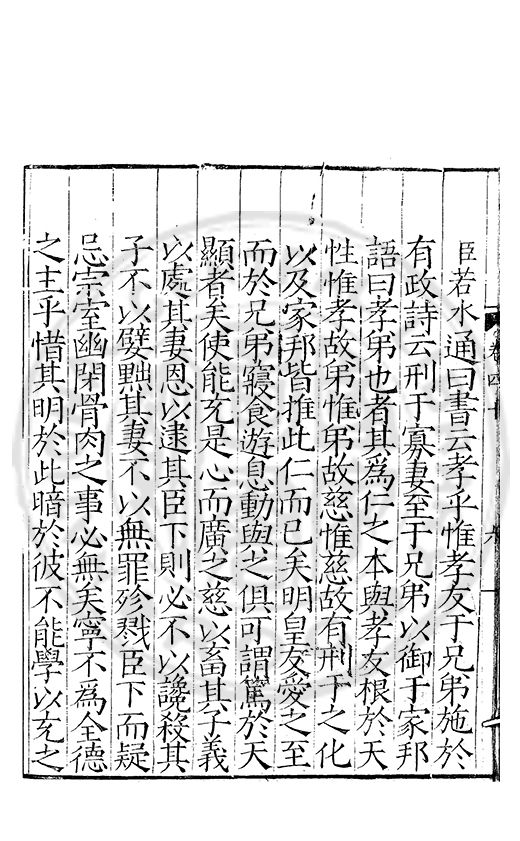 臣若水通曰書云孝乎惟孝友于兄弟施於
有政詩云刑于寡妻至于兄弟以御于家邦
語曰孝弟也者其為仁之本與孝友根於天
性惟孝故弟惟弟故慈惟慈故有刑于之化
以及家邦皆推此仁而已矣明皇友愛之至
而於兄弟寢食游息動與之俱可謂篤於天
顯者矣使能充是心而廣之慈以畜其子義
以處其妻恩以逮其臣下則必不以讒殺其
子不以嬖黜其妻不以無罪殄戮臣下而疑
忌宗室幽閉骨肉之事必無矣寧不為全德
之主乎惜其明於此暗於彼不能學以充之
卷四十